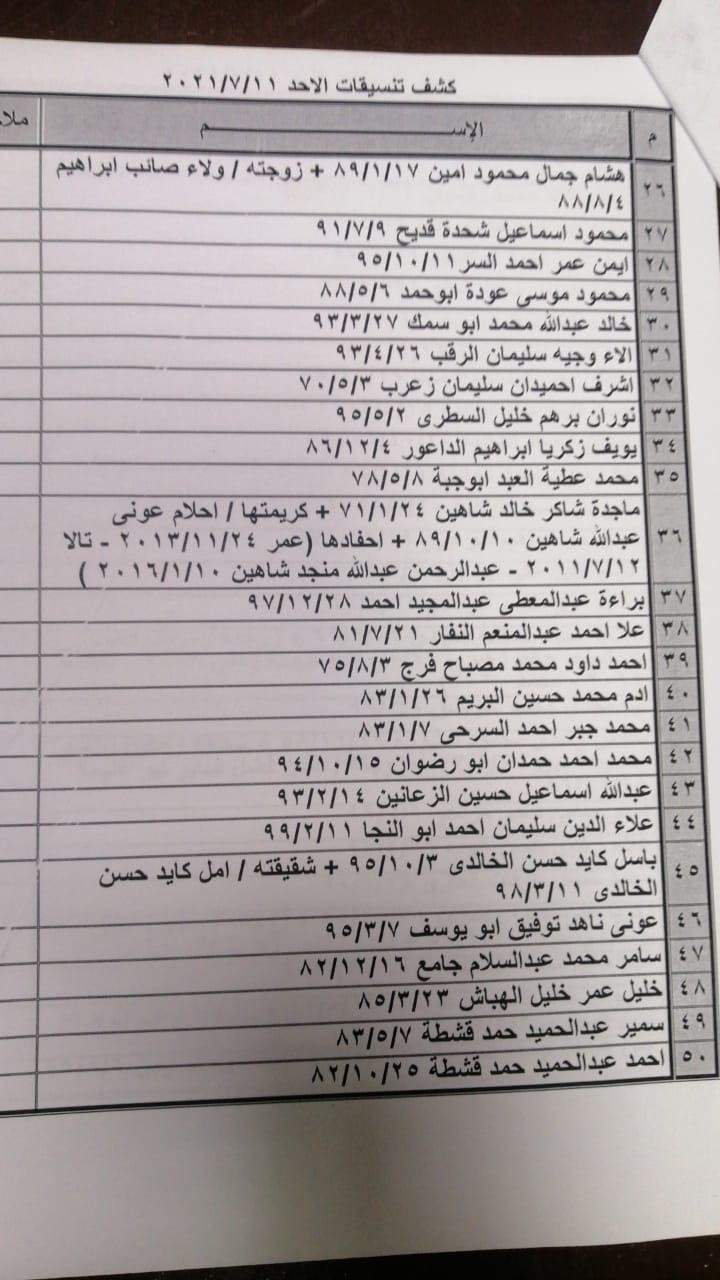 كشف تنسيقات الاحد ٢٠٢١/٧/١١
م الإســـــم ملا
٢٦ هشام جمال محمود امين ٨٩/١/١٧ + زوجته / ولاء صائب ابراهيم
٨٨/٨/٤
٢٧ محمود اسماعيل شحدة قديح ٩١/٧/٩
٢٨ ايمن عمر احمد السر ٩٥/١٠/١١
٢٩ محمود موسى عودة ابوحمد ٨٨/٥/٦
٣٠ خالد عبدالله محمد ابو سمك ٩٣/٣/٢٧
٣١ الاء وجيه سليمان الرقب ٩٣/٤/٢٦
٣٢ اشرف احميدان سليمان زعرب ٧٠/٥/٣
٣٣ نوران برهم خليل السطرى ٩٥/٥/٢
٣٤ يويف زكريا ابراهيم الداعور ٨٦/١٢/٤
٣٥ محمد عطية العبد ابوجبة ٧٨/٥/٨
ماجدة شاكر خالد شاهين ٧١/١/٢٤ + كريمتها / احلام عونى
٣٦ عبدالله شاهين ٨٩/١٠/١٠ + احفادها (عمر ٢٠١٣/١١/٢٤ - تالا
٢٠١١/٧/١٢ - عبدالرحمن عبدالله منجد شاهين ٢٠١٦/١/١٠ )
٣٧ براءة عبدالمعطى عبدالمجيد احمد ٩٧/١٢/٢٨
٣٨ علا احمد عبدالمنعم النفار ٨١/٧/٢١
٣٩ احمد داود محمد مصباح فرج ٧٥/٨/٣
٤٠ ادم محمد حسين البريم ٨٣/١/٢٦
٤١ محمد جبر احمد السرحى ٨٣/١/٧
٤٢ محمد احمد حمدان ابو رضوان ٩٤/١٠/١٥
٤٣ عبدالله اسماعيل حسين الزعانين ٩٣/٢/١٤
٤٤ علاء الدين سليمان احمد ابو النجا ٩٩/٢/١١
٤٥ باسل كايد حسن الخالدى ٩٥/١٠/٣ + شقيقته / امل كايد حسن
الخالدى ٩٨/٣/١١
٤٦ عونى ناهد توفيق ابو يوسف ٩٥/٣/٧
٤٧ سامر محمد عبدالسلام جامع ٨٢/١٢/١٦
٤٨ خليل عمر خليل الهباش ٨٥/٣/٢٣
٤٩ سمير عبدالحميد حمد قشطة ٨٣/٥/٧
٥٠ احمد عبدالحميد حمد قشطة ٨٢/١٠/٢٥